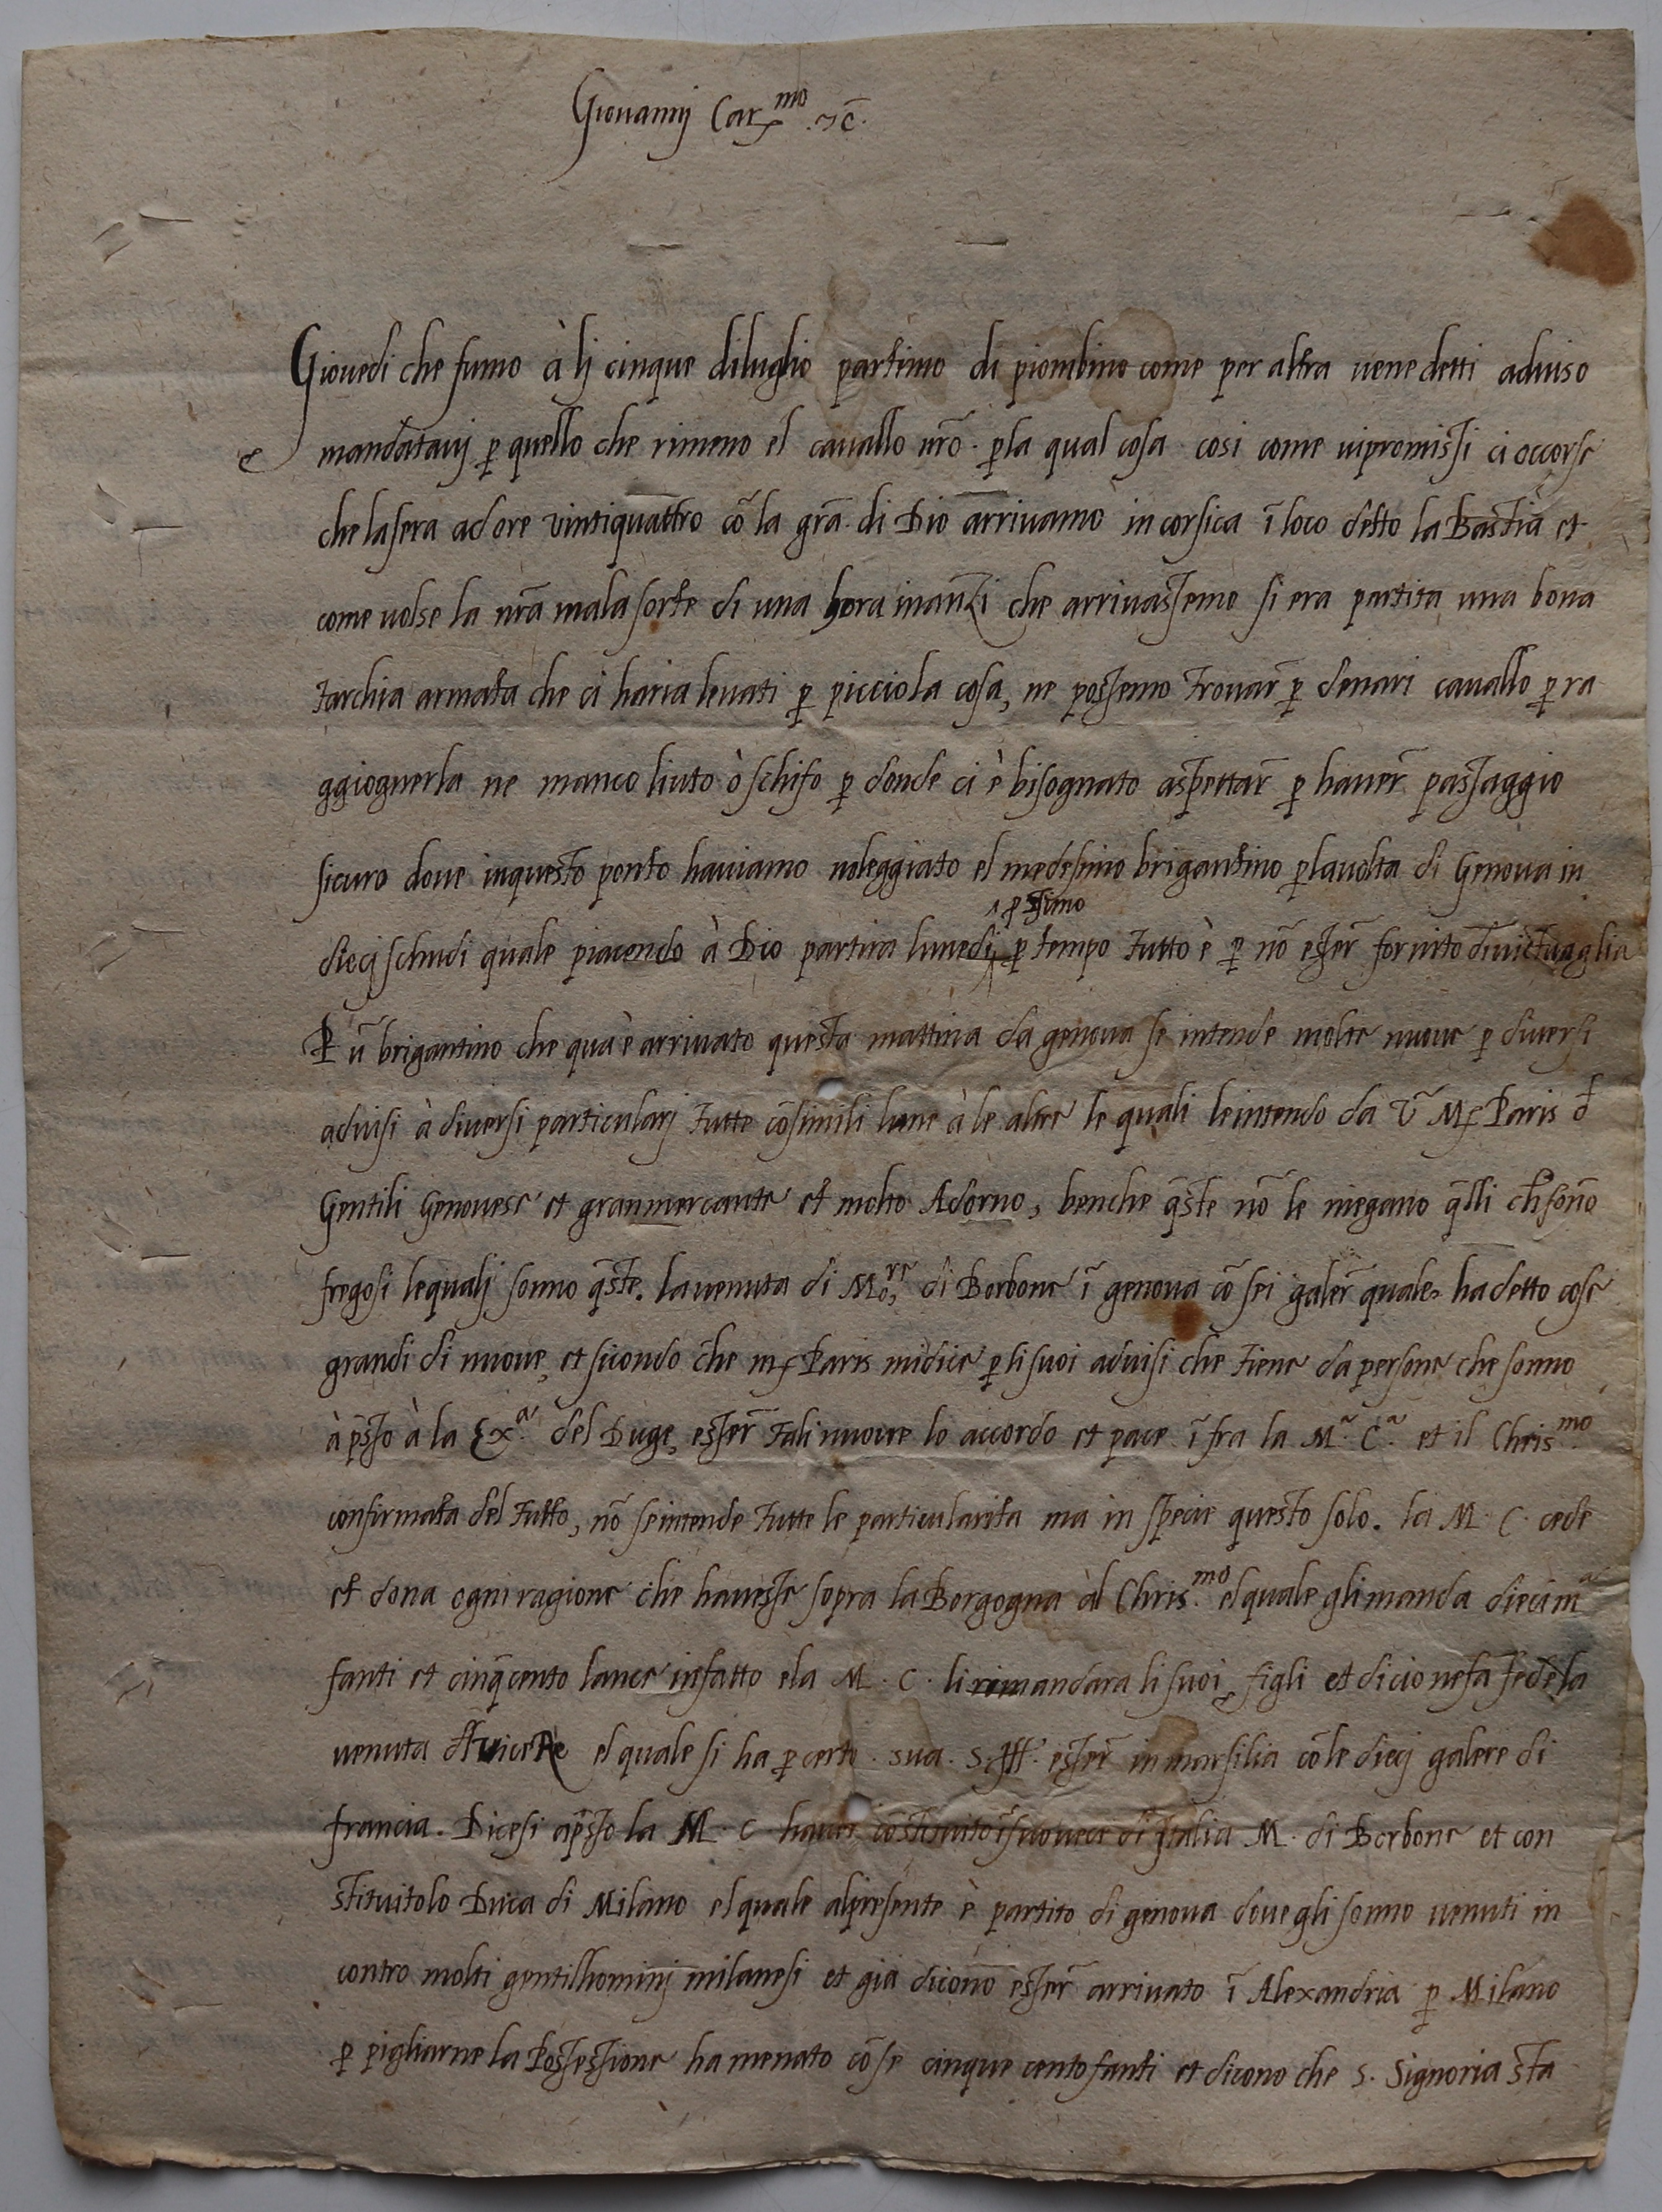 Giouannj Car.mo .⁊c̄.
Giouedi che fumo à lj cinque diluglio partimo di piombino come per altra uene detti aduiso
mandatauj ꝑ quello che rimeno el cauallo nr̄o . ꝑla qual cosa cosi come uipromissi ci occorse
che lasera ad ore vintiquattro cō la gr̄a. di Dio arriuamo in corsica ī loco detto la Bastia et
come uolse la nr̄a mala sorte di una hora inanzi che arriuassemo si era partita una bona
tarchia armata che ci haria leuati ꝑ picciola cosa, ne possemo trouar̄ ꝑ denari cauallo ꝑ ra
ggiognerla ne manco liuto ò schifo ꝑ donde ci è bisognato aspettar̄ ꝑ hauer̄ passaggio
sicuro doue inquesto ponto hauiamo noleggiato el medesimo brigantino ꝑlauolta di Genoua in
ꝓssimo
diecj schudi quale piacendo à Dio partira lunedi ꝑ tempo tutto è ꝑ nō esser̄ fornito di uictuaglia
ꝑ ū brigantino che qua è arriuato questa mattina da genoua se intende molte nuoue ꝑ diuersi
aduisi à diuersi particularj tutte cōsimili lune à le altre le quali le intendo da ū Mꝭ Paris d̄
Gentili Genouese et granmercante et molto Adorno, benche q̄ste nō le niegano q̄lli ch̄ sonno
fregosi lequalj sonno q̄ste. lauenuta di Mo.re di Borbone ī genoua cō sei galer̄ quale ha detto cose
grandi di nuoue, et sicondo che mꝭ Paris midice ꝑ li suoi aduisi che tiene da persone che sonno
à p̄sso à la Ex.a del Duge, esser̄ tali nuoue lo accordo et pace ī fra la M.a C.a et il Chris.mo
confirmata del tutto, nō se intende tutte le particularita ma in specie questo solo. la M. C. cede
et dona ogni ragione che hauesse sopra la Borgogna àl Chris.mo el quale gli manda diecim.a
fanti et cinq̄cento lance infatto e la M. C. li rimandara li suoi figli et dicio nefa fede la
uenuta d̄l viceRe el quale si ha ꝑ certo . sua . S. Ill. esser̄ in marsilia cōle diecj galere di
francia. Dicesi ap̄sso la M. C hauer̄ cōstituito ī suo uece di Italia M. di Borbone et con
stituitolo Duca di Milano el quale alpresente è partito di genoua doue gli sonno uenuti in
contro molti gentilhominj milanesi et già dicono esser̄ arriuato ī Alexandria ꝑ Milano
ꝑ pigliarne la Possessione ha menato cō se cinque cento fanti et dicono che S. Signoria sta